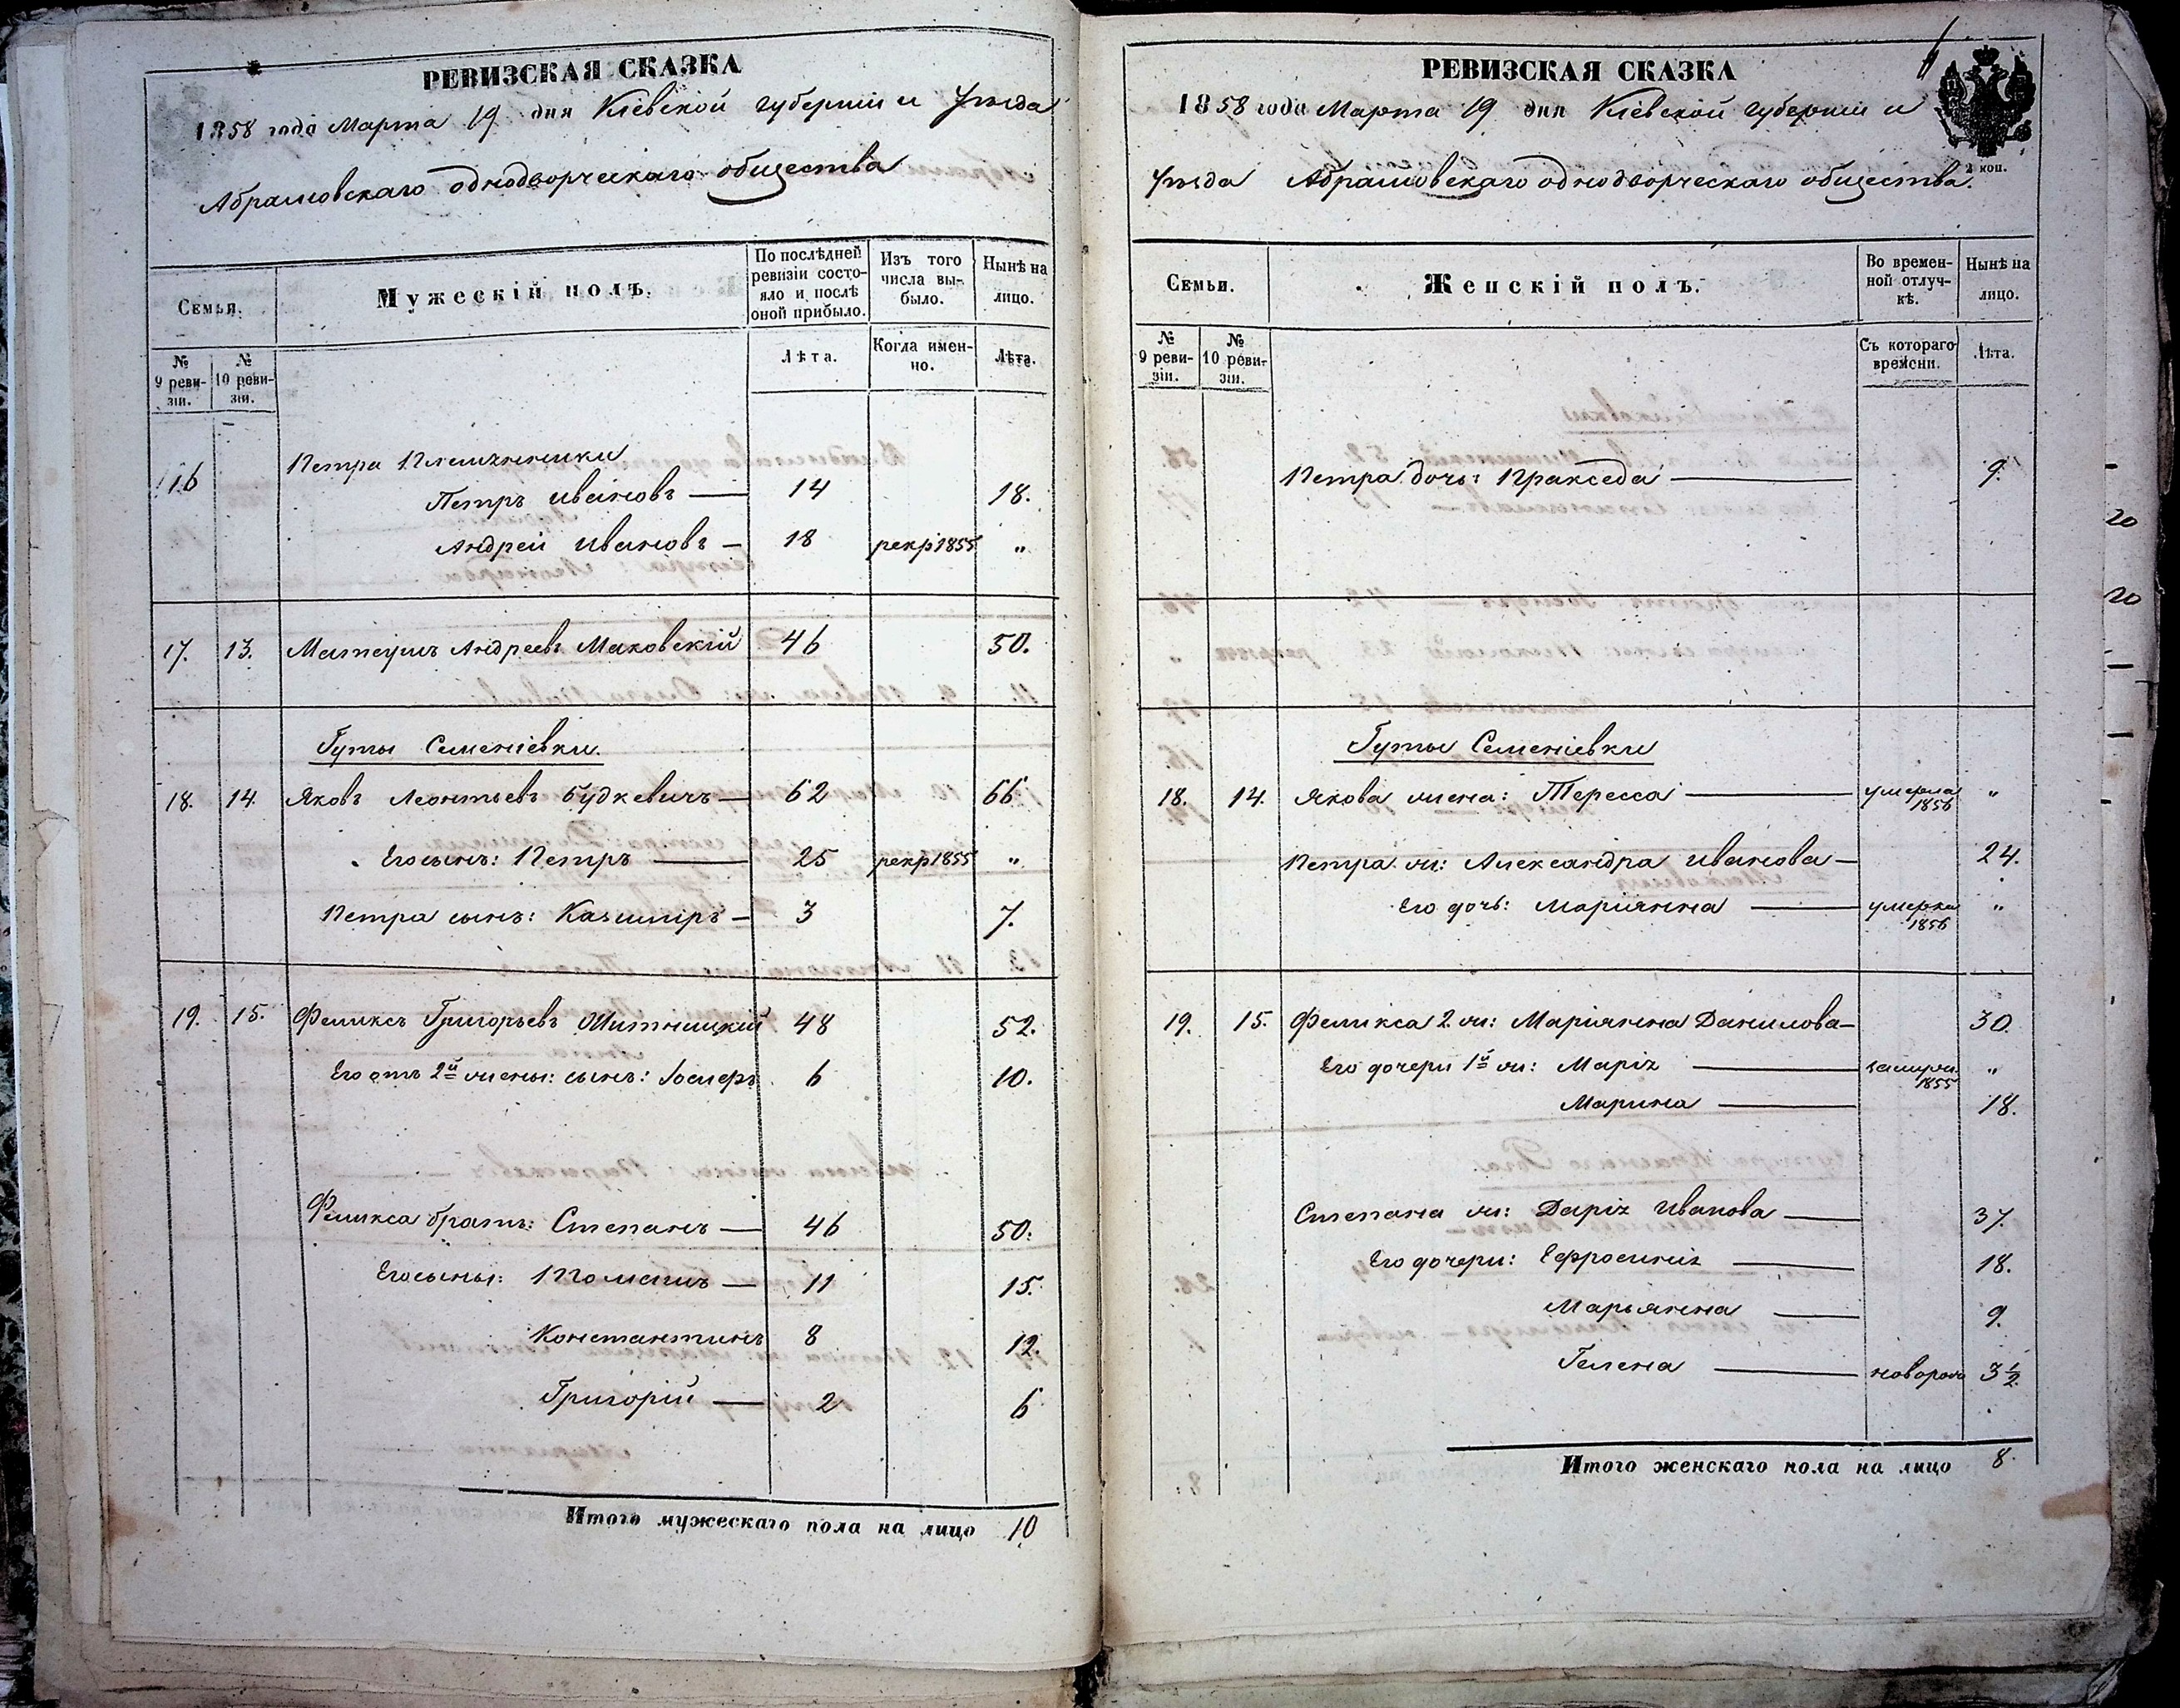 РЕВИЗСКАЯ СКАЗКА
1858 года Марта 19 дня Кіевской губерніи и Уѣзда
Абрамовскаго однодворческаго общества
Семьи.
Мужескій полъ.
По послѣдней ревизіи состояло и послѣ оной прибыло.
Изъ того числа выбыло.
Нынѣ на лицо.
№ 9 ревизіи.
№ 10 ревизіи.
Лѣта.
Когда именно.
Лѣта.
16 Петра Племянники
Петръ Ивановъ — 14 18.
Андрей Ивановъ — 18 рекр 1855 "
17. 13. Матеушъ Андреевъ Маковскій 46 50.
Гуты Семеніевки.
18. 14. Яковъ Леонтьевъ Будкевичъ — 62 66
Его сынъ: Петръ — 25 рекр 1855 "
Петра сынъ: Казиміръ — 3 7.
19. 15. Феликсъ Григорьевъ Житницкій 48 52.
Его отъ 2й жены: сынъ: Іосифъ 6 10.
Феликса братъ: Степанъ — 46 50.
Его сыны: Томашъ — 11 15.
Константинъ 8 12.
Григорій — 2 6
Итого мужескаго пола на лицо 10
РЕВИЗСКАЯ СКАЗКА
1858 года Марта 19 дня Кіевской губерніи и
2 коп.
Уѣзда Абрамовскаго однодворческаго общества.
Семьи.
Женскій полъ.
Во временной отлучкѣ.
Нынѣ на лицо.
№ 9 ревизіи.
№ 10 ревизіи.
Съ котораго времени.
Лѣта.
Петра дочь: Пракседа — 9.
Гуты Семеніевки
18. 14. Якова жена: Тересса — умерла 1856 "
Петра ж: Александра Иванова — 24.
Его дочь: Маріянна — умерла 1856 "
19. 15. Феликса 2 ж: Маріянна Данилова — 30.
Его дочери 1й ж: Марія — замуж. 1855 "
Марина — 18.
Степана ж: Дарія Иванова — 37.
Его дочери: Ефросинія — 18.
Марьянна — 9.
Гелена — новорож 3½
Итого женскаго пола на лицо 8.
20
20